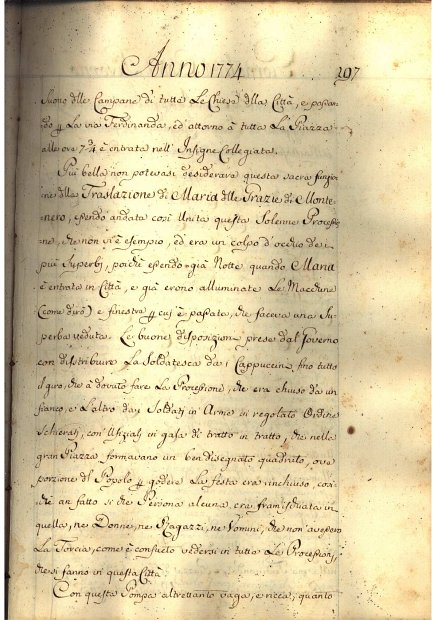 Anno 1774 197
Suono dlle Campane di tutte Le Chiese dlla Città, e passan-
do p La via Ferdinanda, ed attorno à tutta La Piazza
alle ore 7 3/4 è entrata nell' Insigne Collegiata.
Più bella non potevasi desiderare questa sacra funzio-
ne dlla Traslazione di Maria dlle Grazie di Monte-
nero, essendo andata così Unita questa Solenne Process-
ne, che non vi è esempio, ed era un colpo d'occhio dei
più Superbi, poichè essendo già Notte quando Maria
è entrata in Città, e già erono alluminate Le
(come dirò) e finestre p cui è passata, che faceva una Su-
perba veduta. Le buone disposizioni prese dal Governo
con distribuire La Soldatesca da i Cappuccini fino tutto
il giro, che à dovuto fare La Processione, che era chiuso da un
fianco, e L'altro dai Soldati in Armi in regolato Ordine
Schierati, con Ufiziali in gala di tratto in tratto, che nella
gran Piazza formavano un ben disegnato quadrato, ove
porzione dl Popolo p godere La festa era rinchiuso, cosi-
chè an fatto si che Persona alcuna era framischiata in
quella, ne Donne, ne Ragazzi, ne Uomini, che non avessero
La Torcia, come è consueto vedersi in tutte Le Processioni,
che si fanno in questa Città.
Con questa Pompa altrettanto vaga, e ricca, quanto